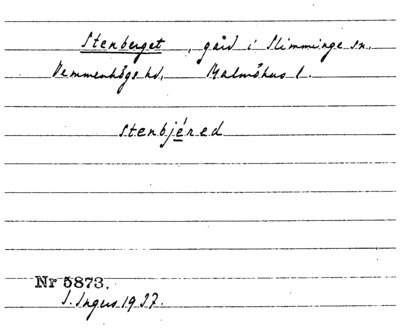 Stenberget, gård i Slimminge sn.
Vemmenhögs hd. Malmöhus l.
stenbjéred
Nr 5873.
I. Ingers 1937.